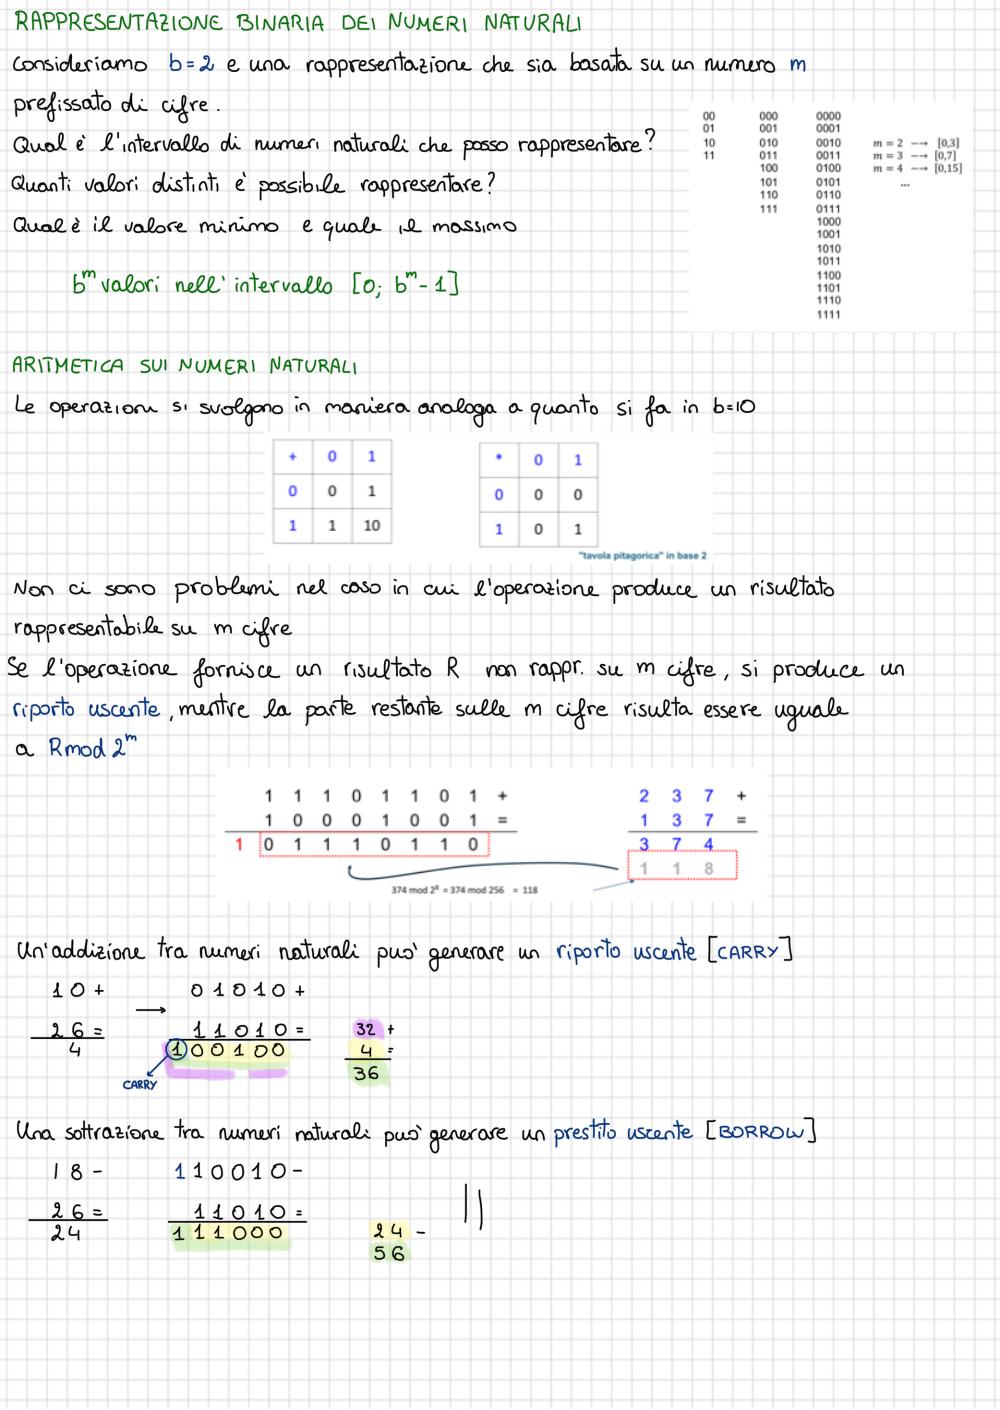 RAPPRESENTAZIONE BINARIA DEI NUMERI NATURALI
Consideriamo b=2 e una rappresentazione che sia basata su un numero m
prefissato di cifre.
Qual è l'intervallo di numeri naturali che posso rappresentare?
Quanti valori distinti è possibile rappresentare?
Qual è il valore minimo e quale il massimo
b^m valori nell'intervallo [0; b^m - 1]
00 000 0000
01 001 0001
10 010 0010 m = 2 --→ [0,3]
11 011 0011 m = 3 --→ [0,7]
100 0100 m = 4 --→ [0,15]
101 0101 ...
110 0110
111 0111
1000
1001
1010
1011
1100
1101
1110
1111
ARITMETICA SUI NUMERI NATURALI
Le operazioni si svolgono in maniera analoga a quanto si fa in b=10
+ 0 1 * 0 1
0 0 1 0 0 0
1 1 10 1 0 1
"tavola pitagorica" in base 2
Non ci sono problemi nel caso in cui l'operazione produce un risultato
rappresentabile su m cifre
Se l'operazione fornisce un risultato R non rappr. su m cifre, si produce un
riporto uscente, mentre la parte restante sulle m cifre risulta essere uguale
a Rmod 2^m
1 1 1 0 1 1 0 1 + 2 3 7 +
1 0 0 0 1 0 0 1 = 1 3 7 =
1 0 1 1 1 0 1 1 0 3 7 4
1 1 8
374 mod 2^8 = 374 mod 256 = 118
Un'addizione tra numeri naturali può generare un riporto uscente [CARRY]
10 + → 01010 +
26 = 11010 = 32 +
4 100100 4 =
CARRY 36
Una sottrazione tra numeri naturali può generare un prestito uscente [BORROW]
18 - 110010 -
26 = 11010 =
24 111000 24 -
56